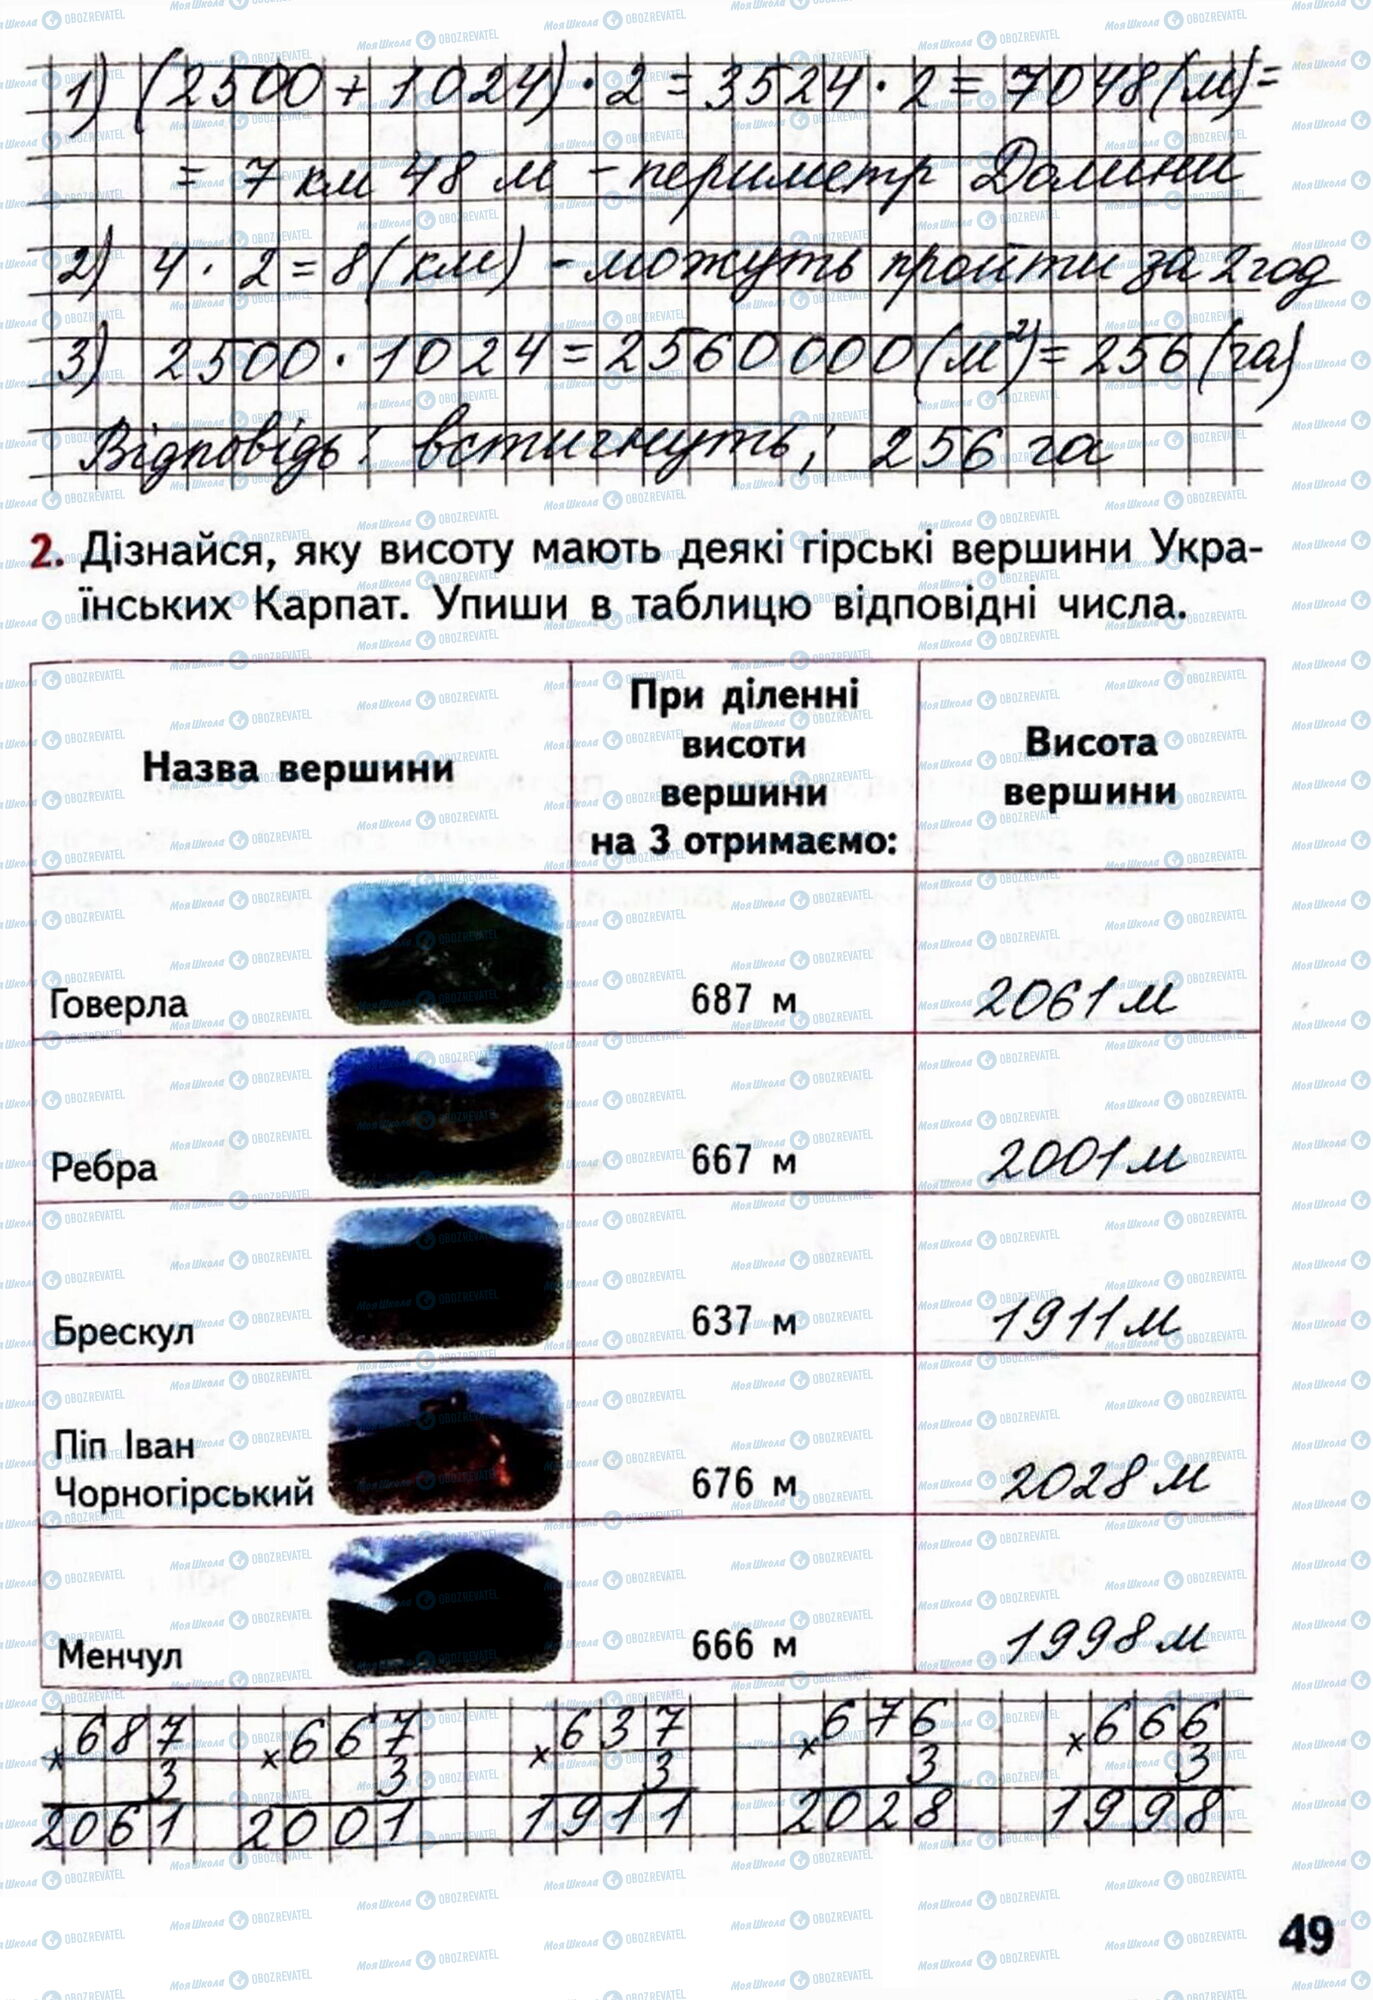 1) (2500 + 1024) · 2 = 3524 · 2 = 7048 (м) =
= 7 км 48 м - периметр Долини
2) 4 · 2 = 8 (км) - можуть пройти за 2 год
3) 2500 · 1024 = 2560000 (м²) = 256 (га)
Відповідь: встигнуть; 256 га
2. Дізнайся, яку висоту мають деякі гірські вершини Укра-
їнських Карпат. Упиши в таблицю відповідні числа.
Назва вершини
При діленні
висоти
вершини
на 3 отримаємо:
Висота
вершини
Говерла 687 м 2061 м
Ребра 667 м 2001 м
Брескул 637 м 1911 м
Піп Іван
Чорногірський 676 м 2028 м
Менчул 666 м 1998 м
× 687 × 667 × 637 × 676 × 666
3 3 3 3 3
2061 2001 1911 2028 1998
49
МояШкола OBOZREVATEL